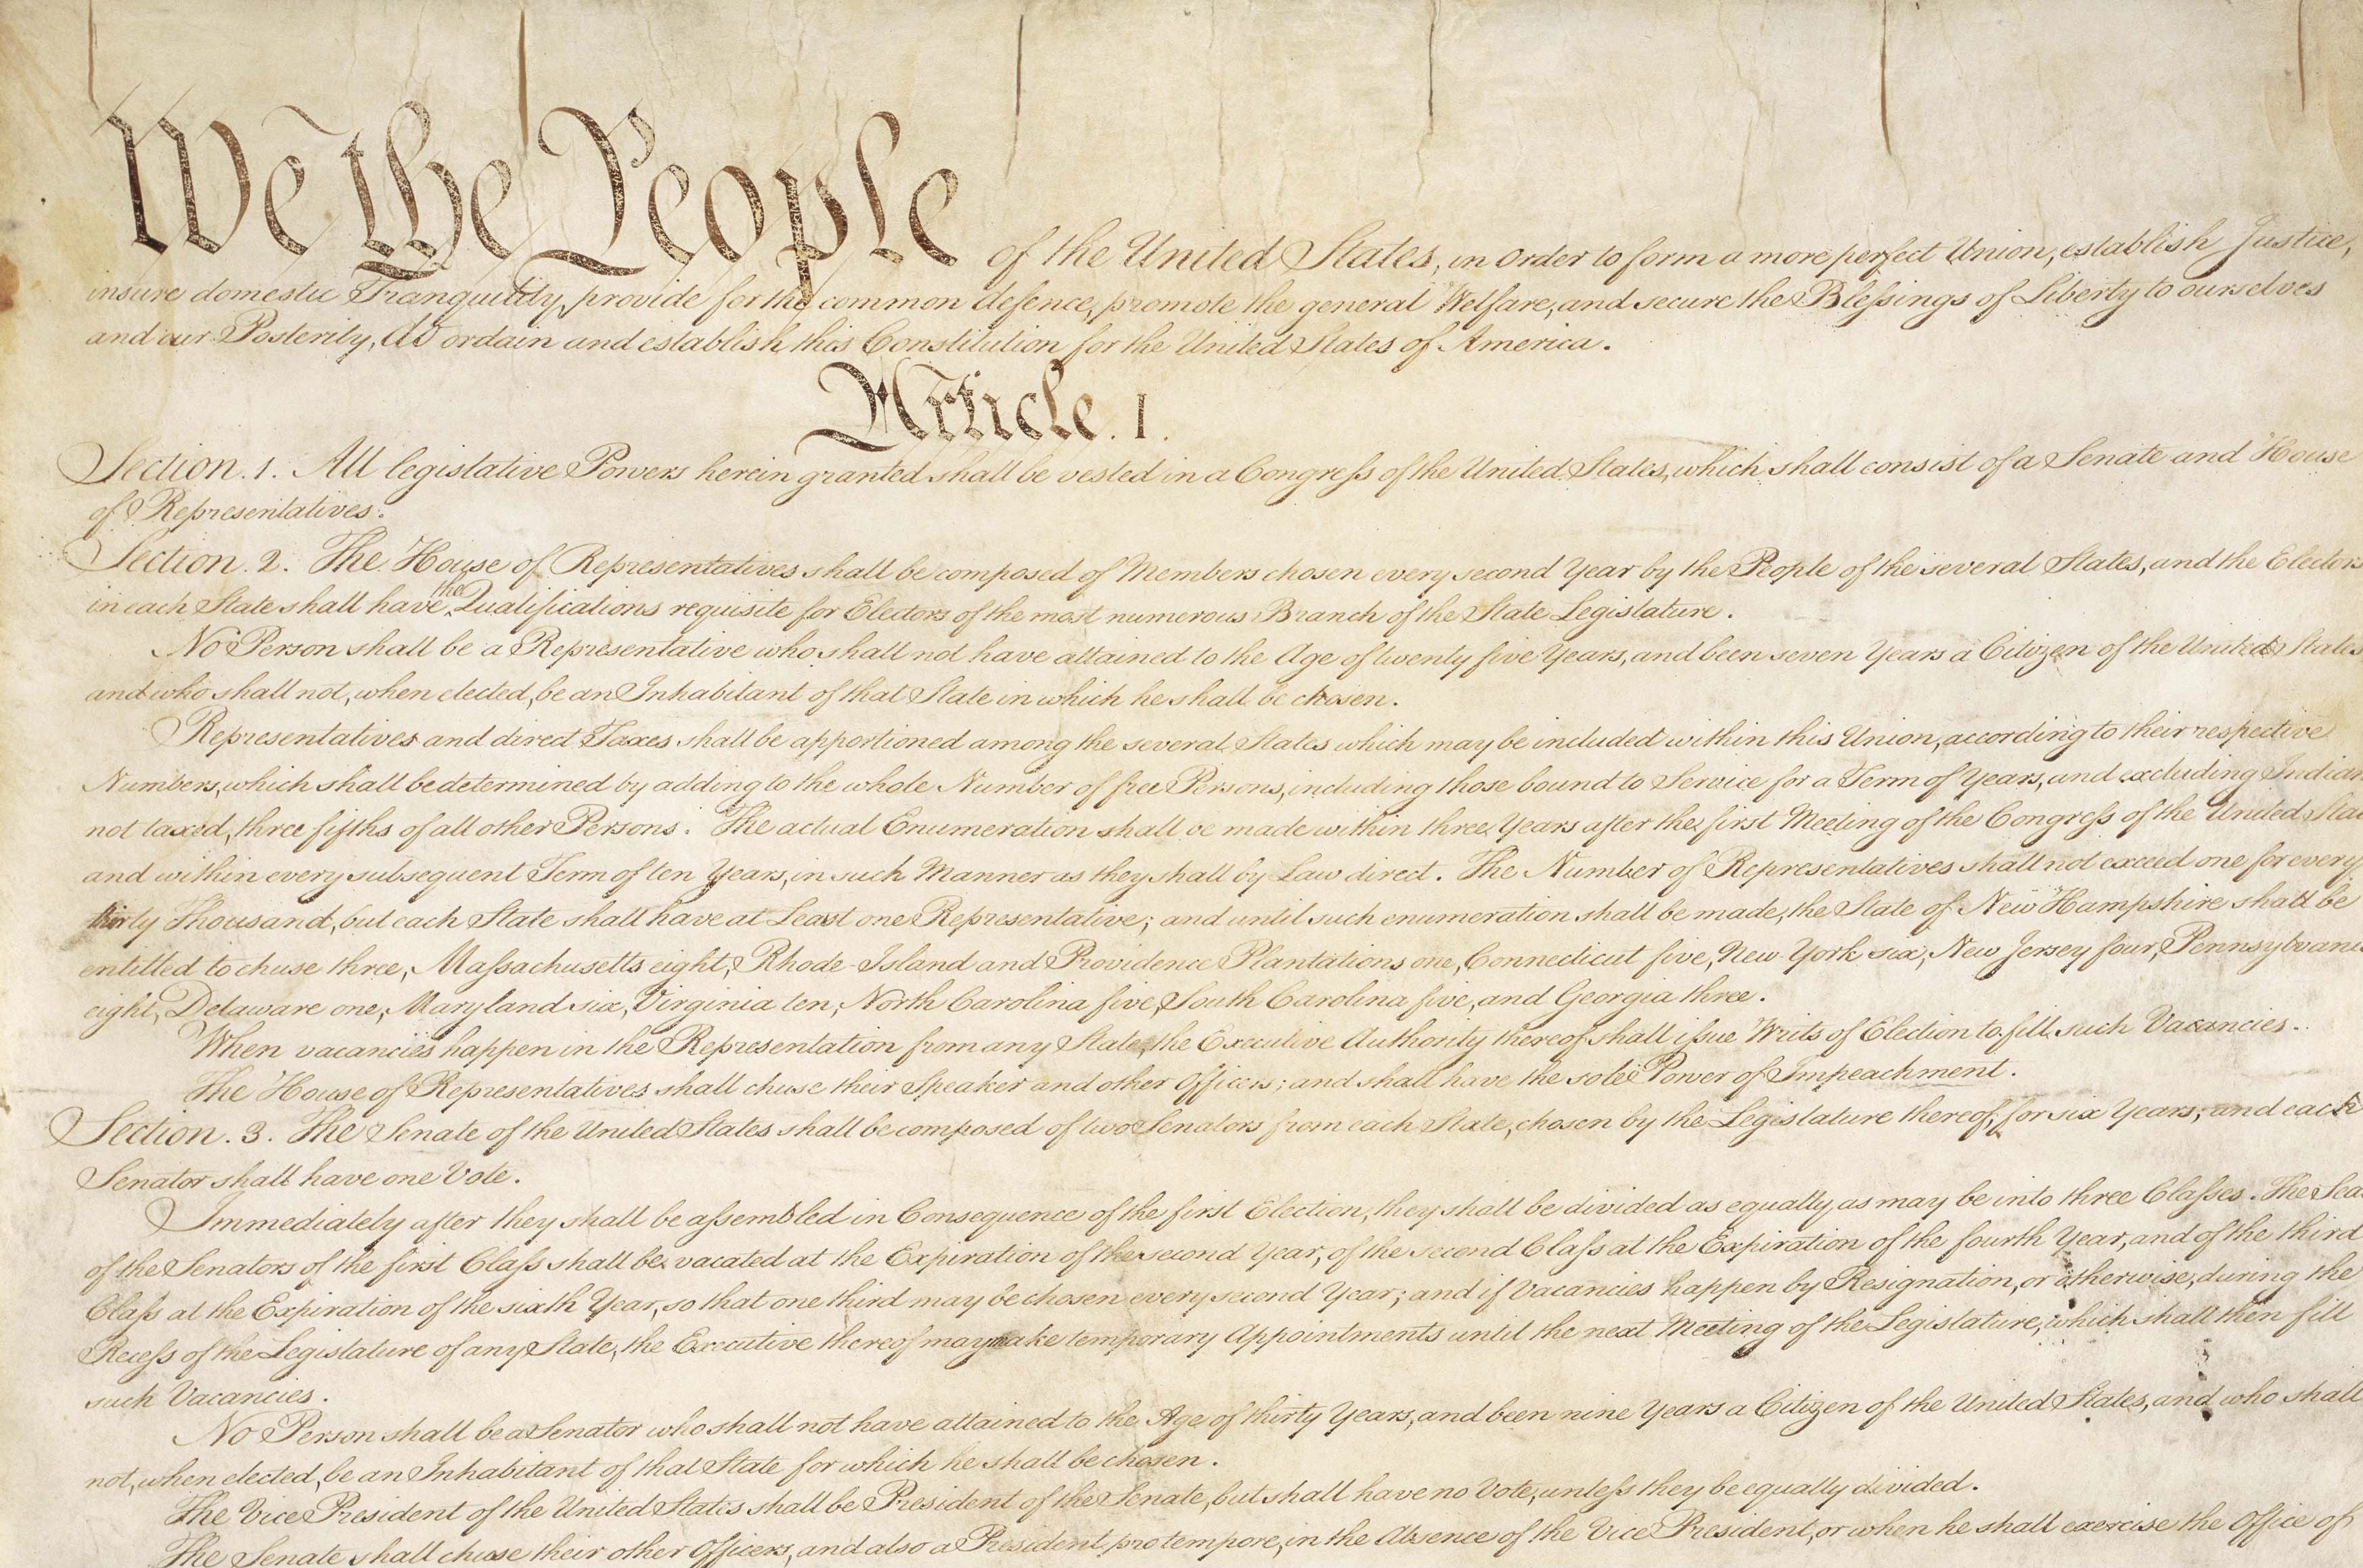 We the People of the United States, in Order to form a more perfect Union, establish Justice,
insure domestic Tranquility, provide for the common defence, promote the general Welfare, and secure the Blessings of Liberty to ourselves
and our Posterity, do ordain and establish this Constitution for the United States of America.
Article. I.
Section. 1. All legislative Powers herein granted shall be vested in a Congress of the United States, which shall consist of a Senate and House
of Representatives.
Section. 2. The House of Representatives shall be composed of Members chosen every second Year by the People of the several States, and the Electors
in each State shall have the Qualifications requisite for Electors of the most numerous Branch of the State Legislature.
No Person shall be a Representative who shall not have attained to the Age of twenty five Years, and been seven Years a Citizen of the United States,
and who shall not, when elected, be an Inhabitant of that State in which he shall be chosen.
Representatives and direct Taxes shall be apportioned among the several States which may be included within this Union, according to their respective
Numbers, which shall be determined by adding to the whole Number of free Persons, including those bound to Service for a Term of Years, and excluding Indian
not taxed, three fifths of all other Persons. The actual Enumeration shall be made within three Years after the first Meeting of the Congress of the United Sta
and within every subsequent Term of ten Years, in such Manner as they shall by Law direct. The Number of Representatives shall not exceed one for every
thirty Thousand, but each State shall have at Least one Representative; and until such enumeration shall be made, the State of New Hampshire shall be
entitled to chuse three, Massachusetts eight, Rhode-Island and Providence Plantations one, Connecticut five, New-York six, New Jersey four, Pennsylvani
eight, Delaware one, Maryland six, Virginia ten, North Carolina five, South Carolina five, and Georgia three.
When vacancies happen in the Representation from any State, the Executive Authority thereof shall issue Writs of Election to fill such Vacancies.
The House of Representatives shall chuse their Speaker and other Officers; and shall have the sole Power of Impeachment.
Section. 3. The Senate of the United States shall be composed of two Senators from each State, chosen by the Legislature thereof, for six Years; and each
Senator shall have one Vote.
Immediately after they shall be assembled in Consequence of the first Election, they shall be divided as equally as may be into three Classes. The Sea
of the Senators of the first Class shall be vacated at the Expiration of the second Year, of the second Class at the Expiration of the fourth Year, and of the third
Class at the Expiration of the sixth Year, so that one third may be chosen every second Year; and if Vacancies happen by Resignation, or otherwise, during the
Recess of the Legislature of any State, the Executive thereof may make temporary Appointments until the next Meeting of the Legislature, which shall then fill
such Vacancies.
No Person shall be a Senator who shall not have attained to the Age of thirty Years, and been nine Years a Citizen of the United States, and who shall
not, when elected, be an Inhabitant of that State for which he shall be chosen.
The Vice President of the United States shall be President of the Senate, but shall have no Vote, unless they be equally divided.
The Senate shall chuse their other Officers, and also a President pro tempore, in the Absence of the Vice President, or when he shall exercise the Office of